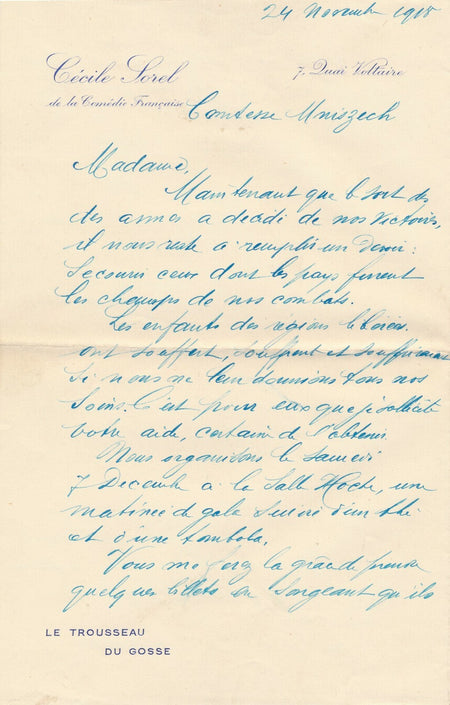 24 Novembre 1918
Cécile Sorel
de la Comédie Française
7, Quai Voltaire
Comtesse Mniszech
Madame,
Maintenant que le sort des
des armes a décidé de nos victoires,
il nous reste à remplir un devoir :
secourir ceux dont les pays furent
les champs de nos combats.
Les enfants des régions libérées
ont souffert, souffrent et souffriraient
si nous ne leur donnions tous nos
soins. C'est pour eux que je sollicite
votre aide, certaine de l'obtenir.
Nous organisons le samedi
7 Décembre à la Salle Hoche, une
matinée de gala suivie d'un thé
et d'une tombola.
Vous me ferez la grâce de prendre
quelques billets en songeant qu'ils
LE TROUSSEAU
DU GOSSE